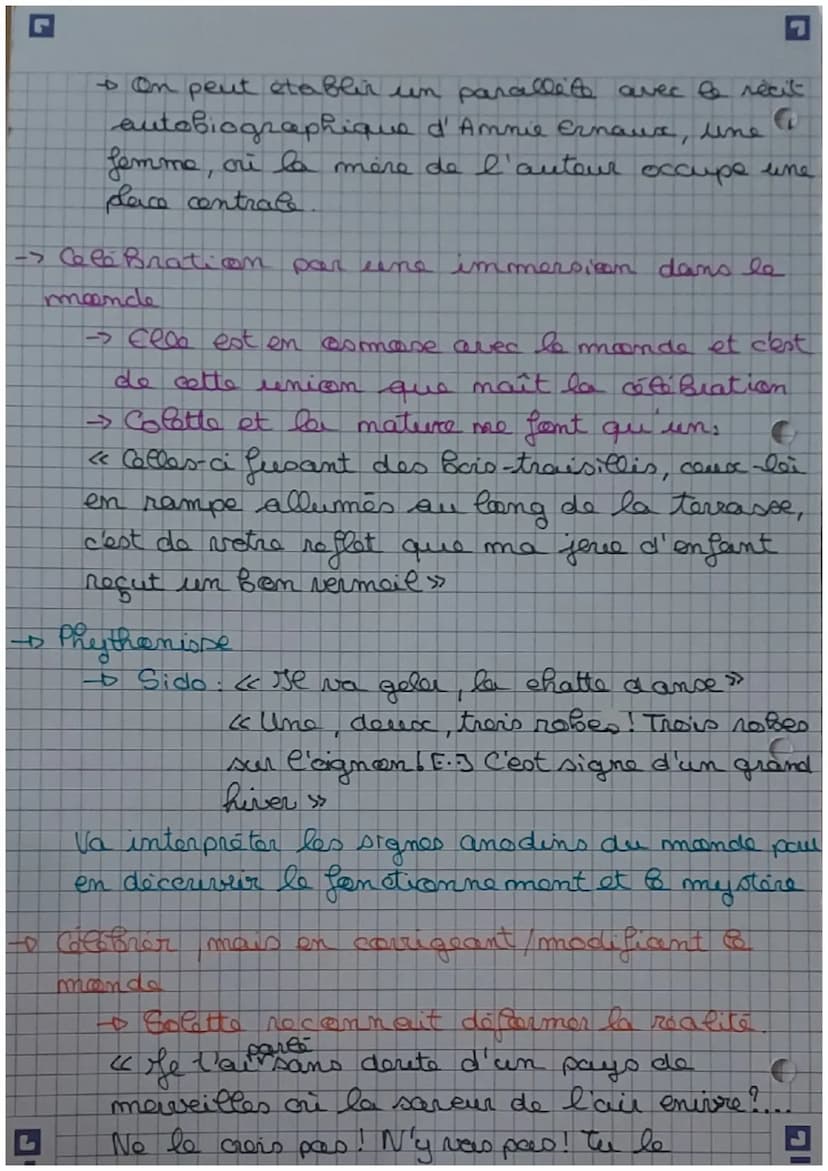 → On peut établir un parallèle avec le récit
autobiographique d'Annie Ernaux, une
femme, où la mère de l'auteur occupe une
place centrale.
-> Célébration par une immersion dans le
monde
-> Cela est en osmose avec le monde et c'est
de cette union que naît la célébration
-> Colette et la nature ne font qu'un:
« Celles-ci fusant des bois-traisillis, ceux-loi
en rampe allumés au long de la terrasse,
c'est de votre reflet que ma joue d'enfant
reçut un bon vermeil »
→ Phythonisse
→ Sido : « Il va geler, la chatte danse »
« Une, deux, trois robes ! Trois robes
sur l'oignon ! [..] C'est signe d'un grand
hiver »
Va interpréter les signes anodins du monde pour
en découvrir le fonctionnement et le mystère
→ Célébrer, mais en corrigeant/modifiant le
monde
→ Colette reconnait déformer la réalité.
parlé
« Je t'ai sans doute d'un pays de
merveilles où la saveur de l'air enivre ?...
Ne le crois pas ! N'y vas pas ! Tu le